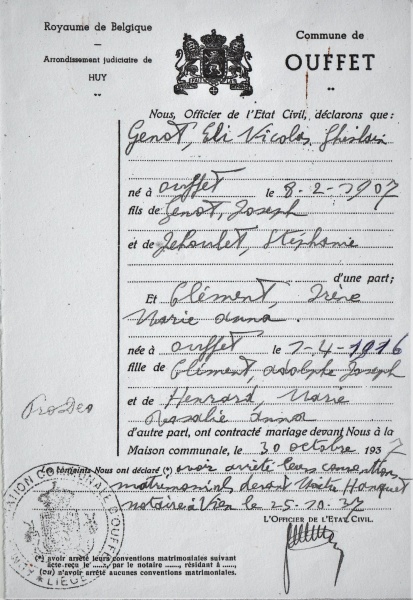 Royaume de Belgique
Arrondissement judiciaire de
HUY
Commune de
OUFFET
Nous, Officier de l'Etat Civil, déclarons que:
Genot, Eli Nicolas Ghislain
né à Ouffet le 8-2-1907
fils de Genot, Joseph
et de Jehoulet, Stéphanie
d'une part;
Et Clément, Irène
Marie Anna.
née à Ouffet le 1-4-1916
fille de Clément, Adolphe Joseph
et de Henrard, Marie
Rosalie Anna
d'autre part, ont contracté mariage devant Nous à la
Maison communale, le 30 octobre 1937
Pro Deo
Les conjoints Nous ont déclaré (*) avoir arrêté leurs conventions
matrimoniales devant Maître
notaire à le 25-10-37
L'OFFICIER DE L'ETAT CIVIL.
(*) avoir arrêté leurs conventions matrimoniales suivant
acte reçu le ......, par le notaire ......, résidant à ......,
(ou) n'avoir arrêté aucunes conventions matrimoniales.
ADMINISTRATION COMMUNALE D'OUFFET
LIEGE